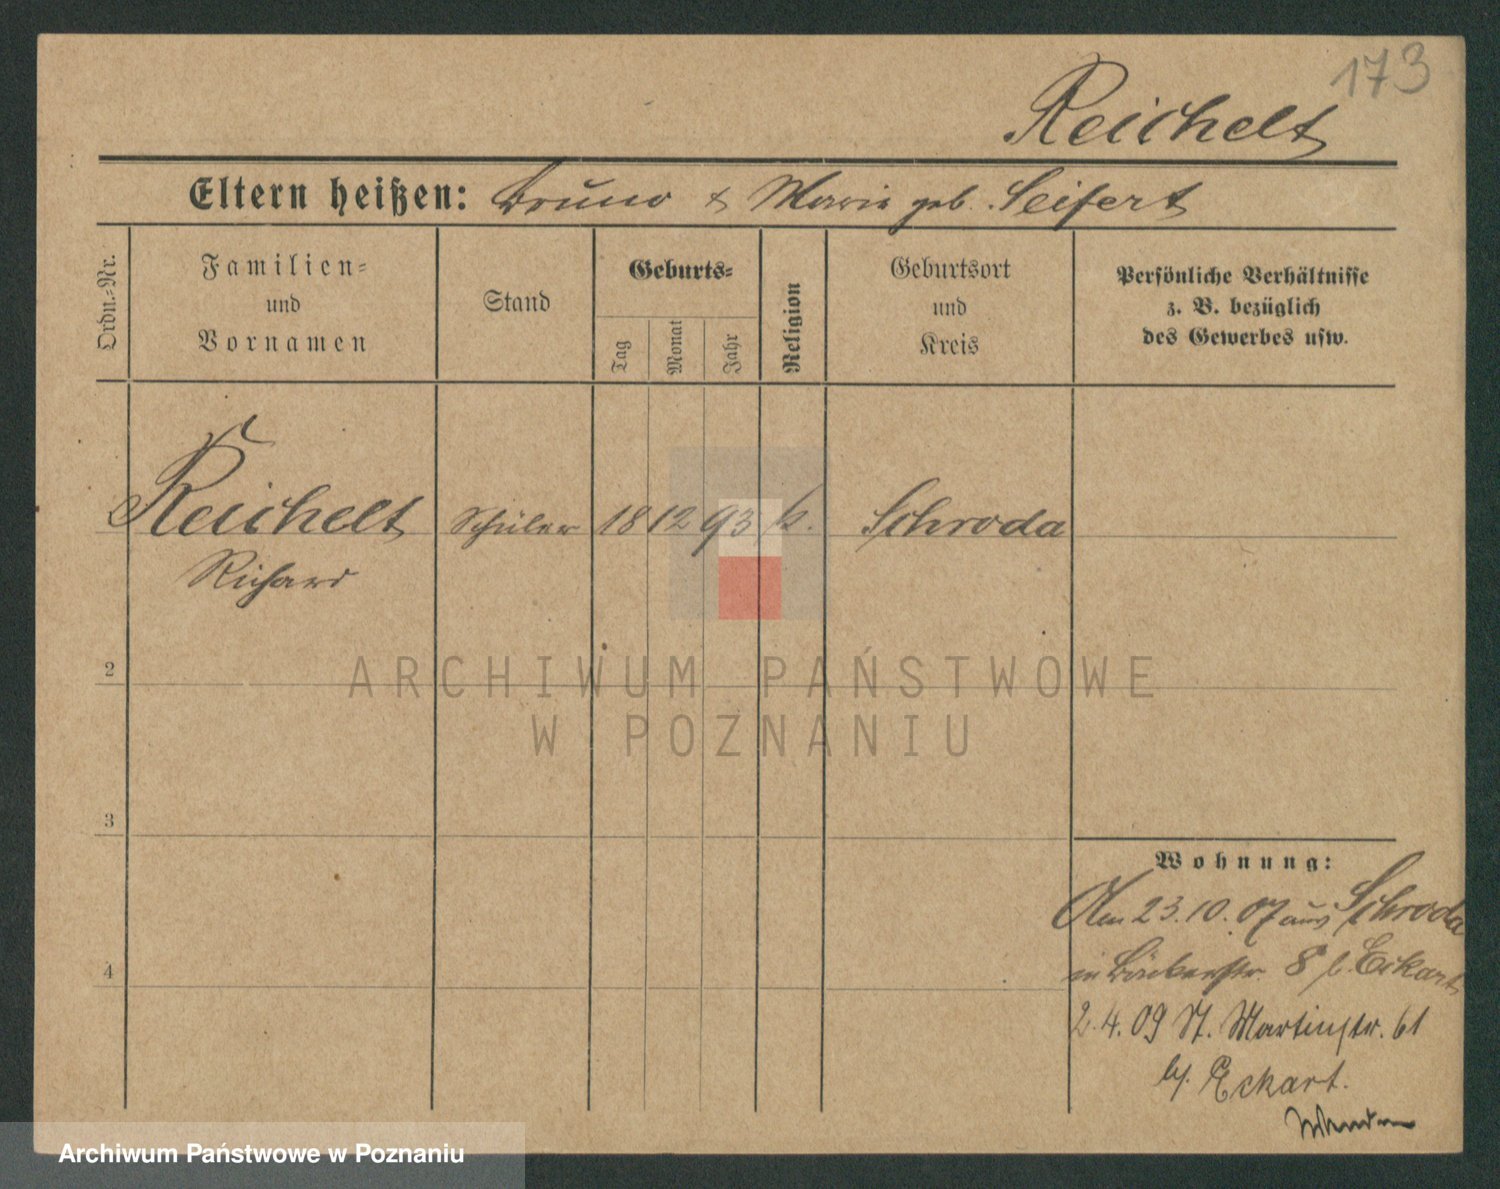 173
Reichelt
Eltern heißen: Bruno & Marie geb. Seifert
Ordn.-Nr.
Familien-
und
Vornamen
Stand
Geburts-
Tag
Monat
Jahr
Religion
Geburtsort
und
Kreis
Persönliche Verhältnisse
z. B. bezüglich
des Gewerbes usw.
Reichelt Schüler 18 12 93 k. Schroda
Richard
ARCHIWUM PAŃSTWOWE
W POZNANIU
2
3
4
Wohnung:
Am 23.10.07 aus Schroda
in Bäckerstr. 8 b. Eckart
2.4.09 St. Martinstr. 61
b/. Eckart.
Archiwum Państwowe w Poznaniu